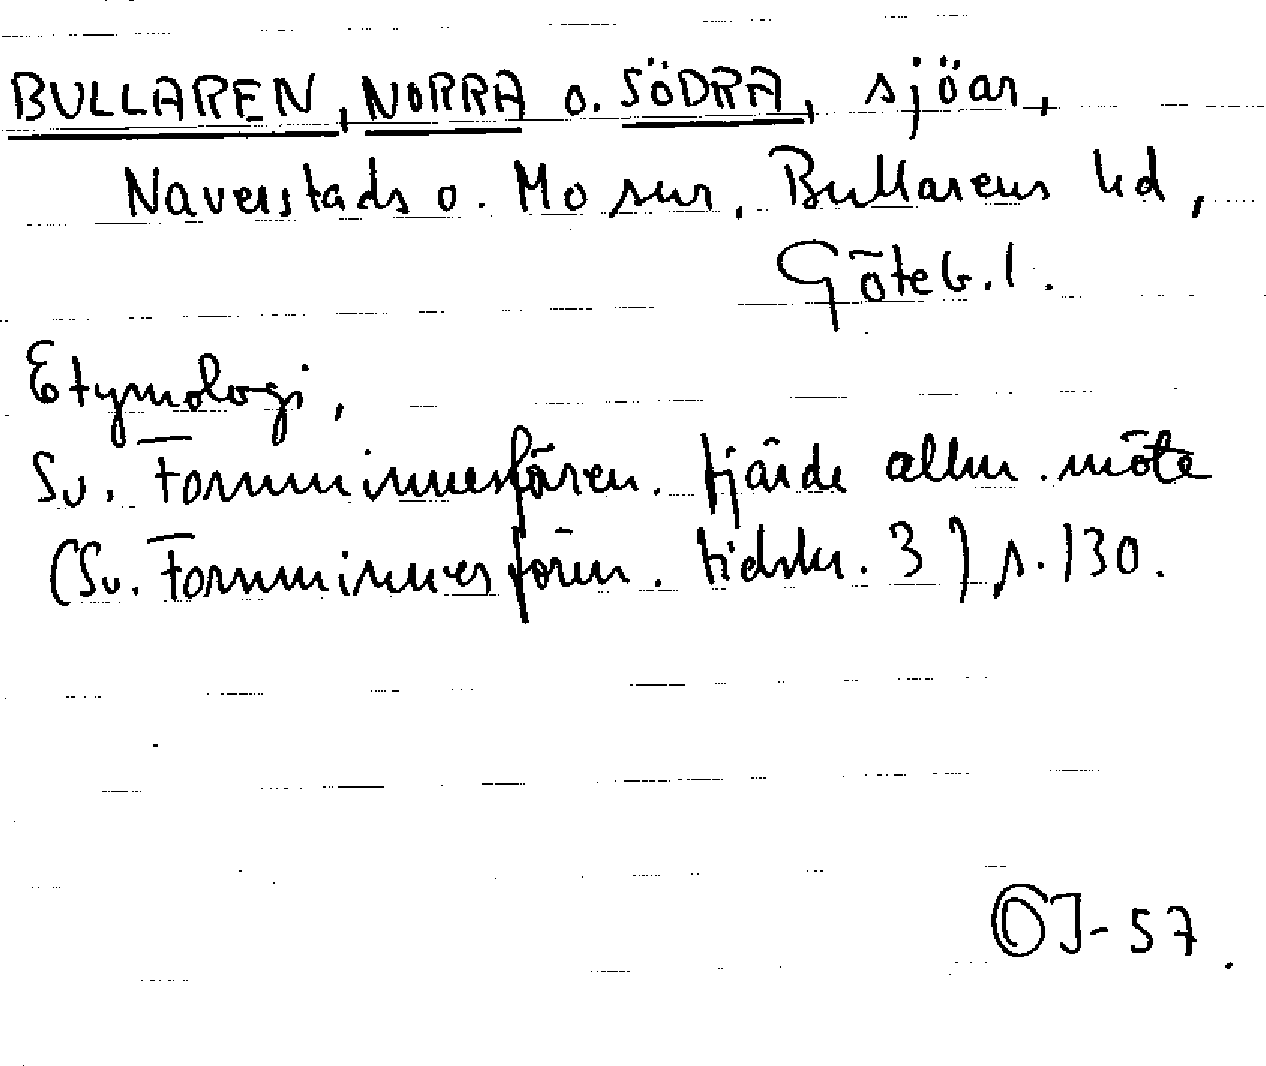 BULLAREN, NORRA o. SÖDRA, sjöar,
Naverstads o. Mo snr, Bullarens hd,
Göteb. l.
Etymologi,
Sv. Fornminnesfören. fjärde allm. möte
(Sv. Fornminnesfören. tidskr. 3) s. 130.
OJ-57.